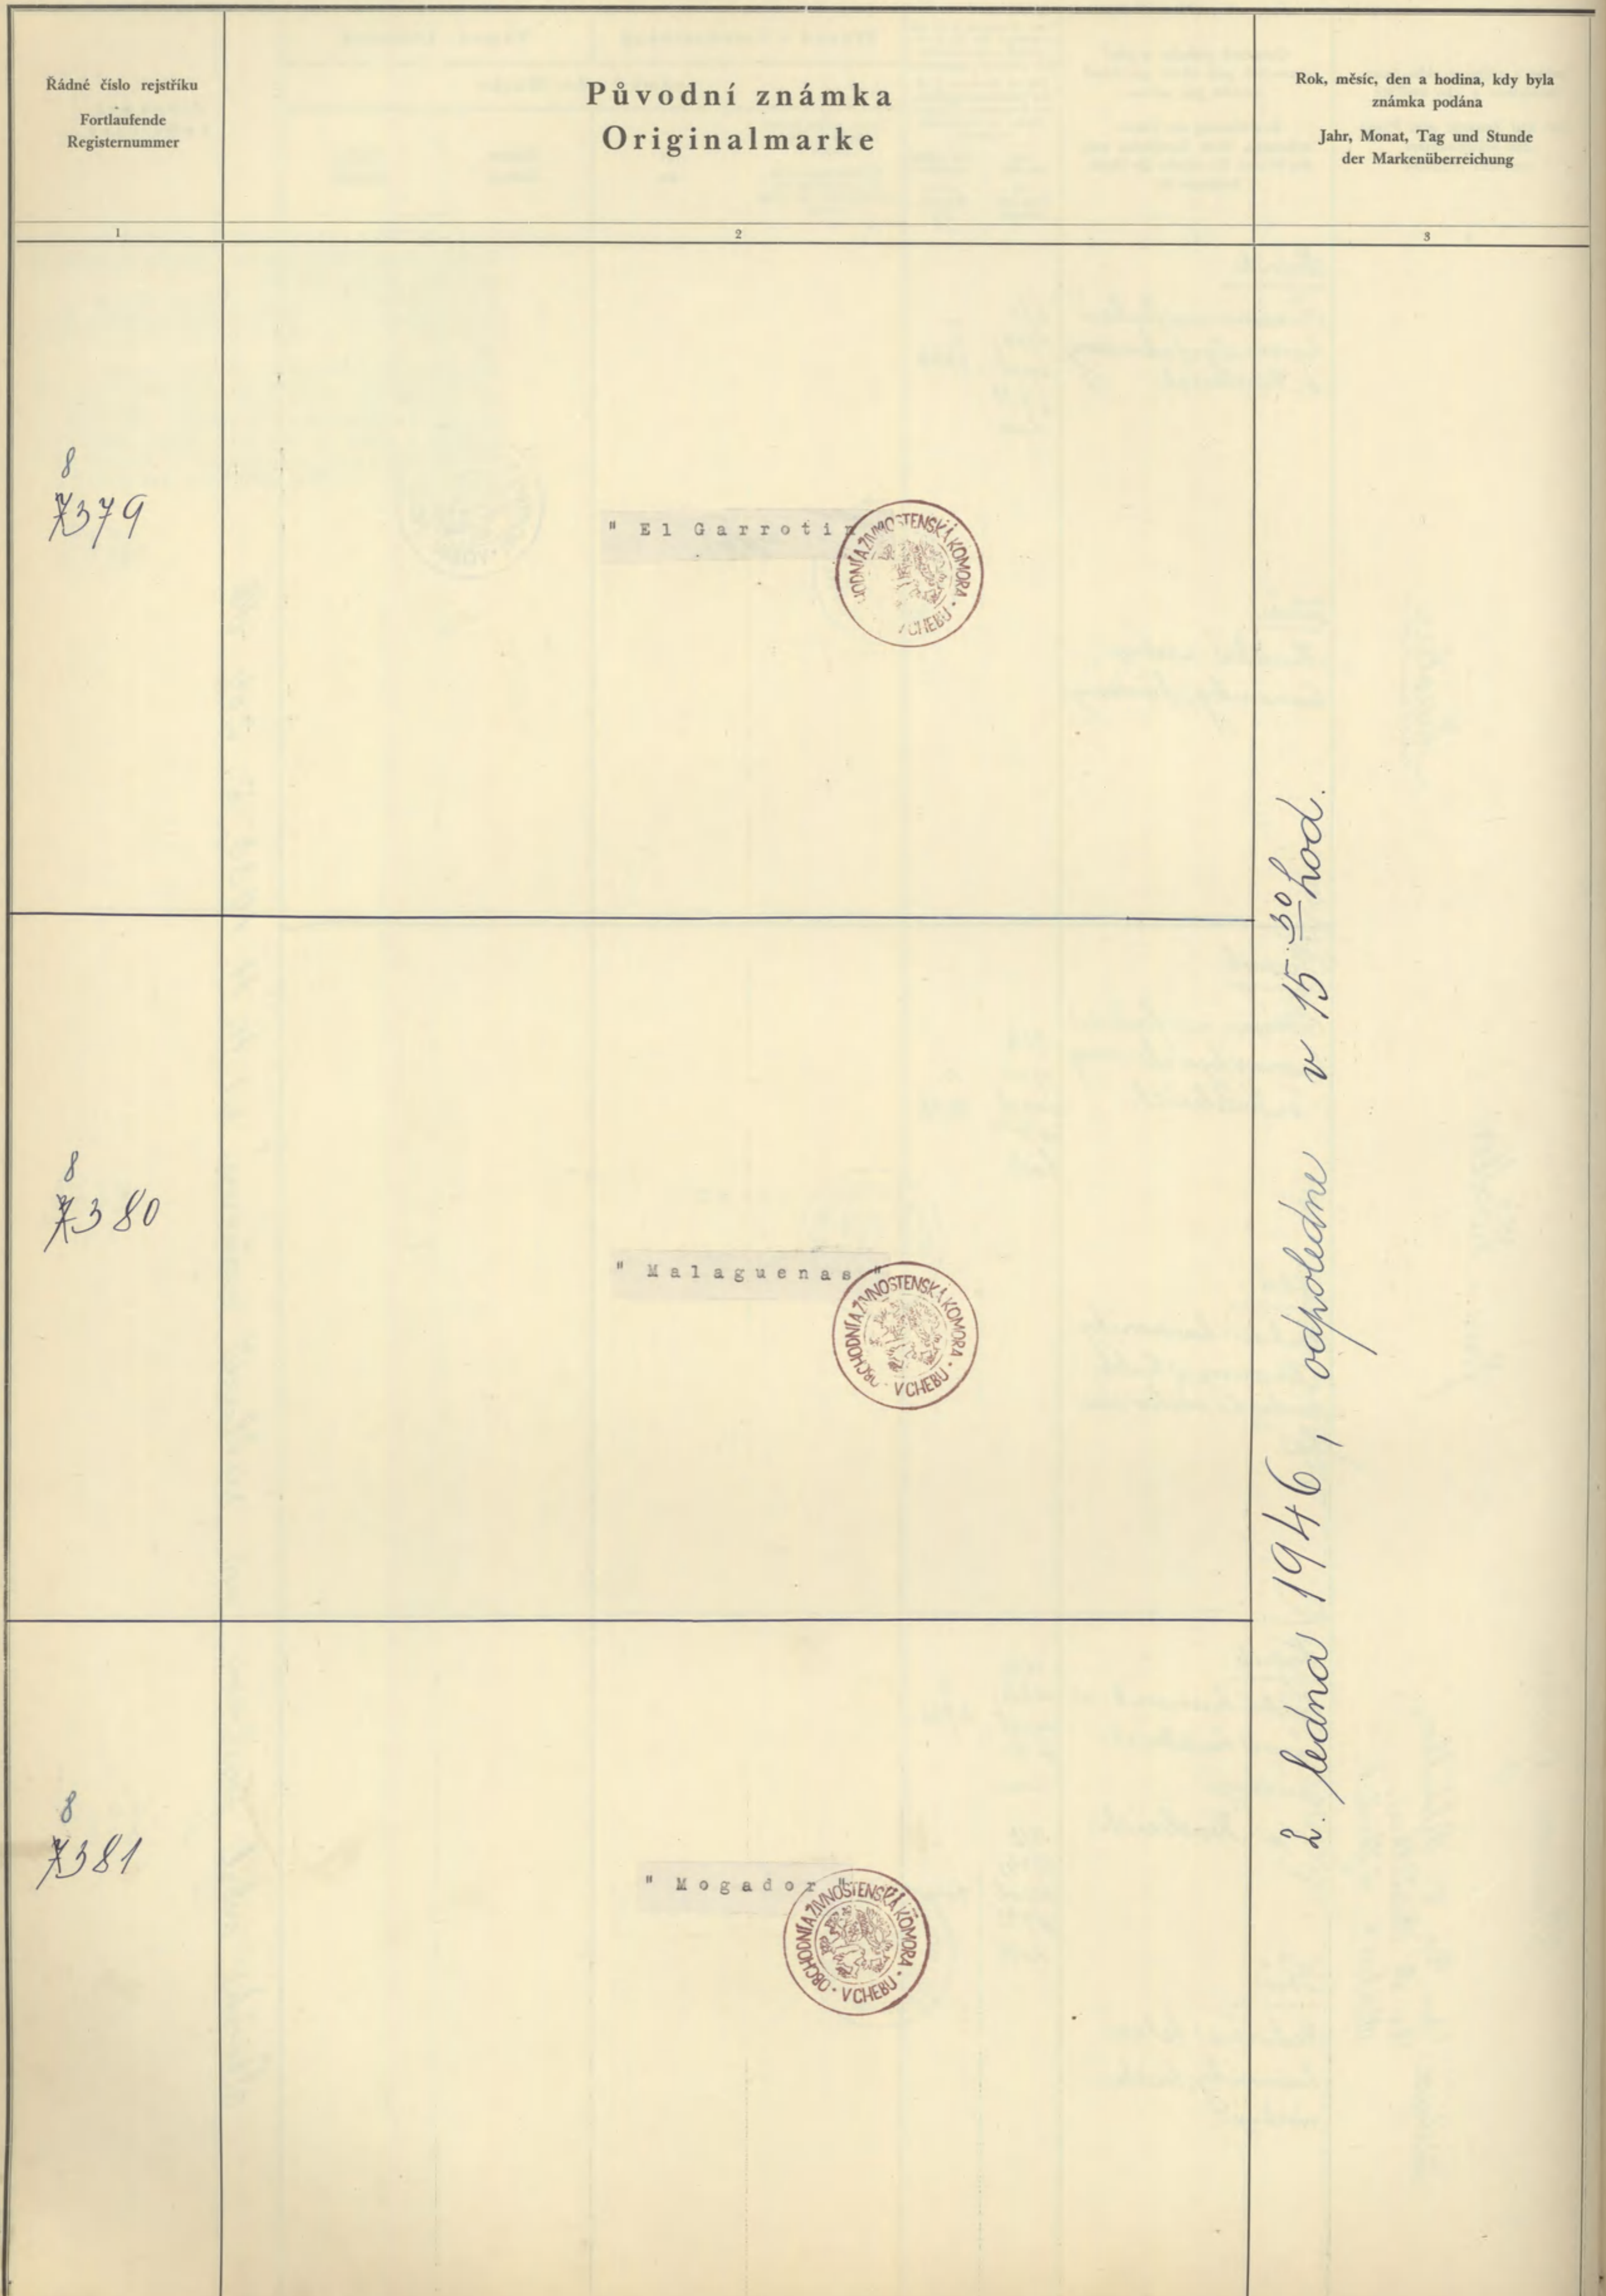 Řádné číslo rejstříku
Fortlaufende
Registernummer
Původní známka
Originalmarke
Rok, měsíc, den a hodina, kdy byla
známka podána
Jahr, Monat, Tag und Stunde
der Markenüberreichung
1
2
3
8
7379
" El Garrotin
HODNÍ A ŽIVNOSTENSKÁ KOMORA · V CHEBU
8
7380
" Malaguenas "
OBCHODNÍ A ŽIVNOSTENSKÁ KOMORA · V CHEBU ·
8
7381
" Mogador "
OBCHODNÍ A ŽIVNOSTENSKÁ KOMORA · V CHEBU ·
2. ledna 1946, odpoledne v 15 30 hod.